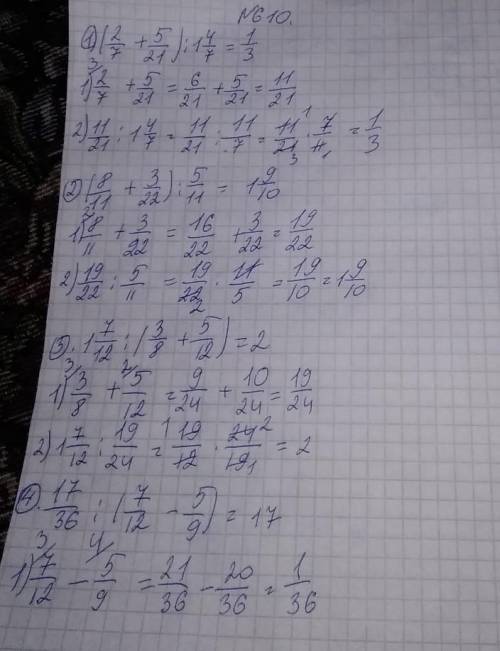 №610.
① (2/7 + 5/21) : 1 4/7 = 1/3
1) 3/ 2/7 + 5/21 = 6/21 + 5/21 = 11/21
2) 11/21 : 1 4/7 = 11/21 : 11/7 = 11/21 · 7/11 = 1/3
② (8/11 + 3/22) : 5/11 = 1 9/10
1) 2/ 8/11 + 3/22 = 16/22 + 3/22 = 19/22
2) 19/22 : 5/11 = 19/22 · 11/5 = 19/10 = 1 9/10
③. 1 7/12 : (3/8 + 5/12) = 2
1) 3/ 3/8 + 2/ 5/12 = 9/24 + 10/24 = 19/24
2) 1 7/12 : 19/24 = 19/12 · 24/19 = 2
④. 17/36 : (7/12 - 5/9) = 17
1) 3/ 7/12 - 4/ 5/9 = 21/36 - 20/36 = 1/36